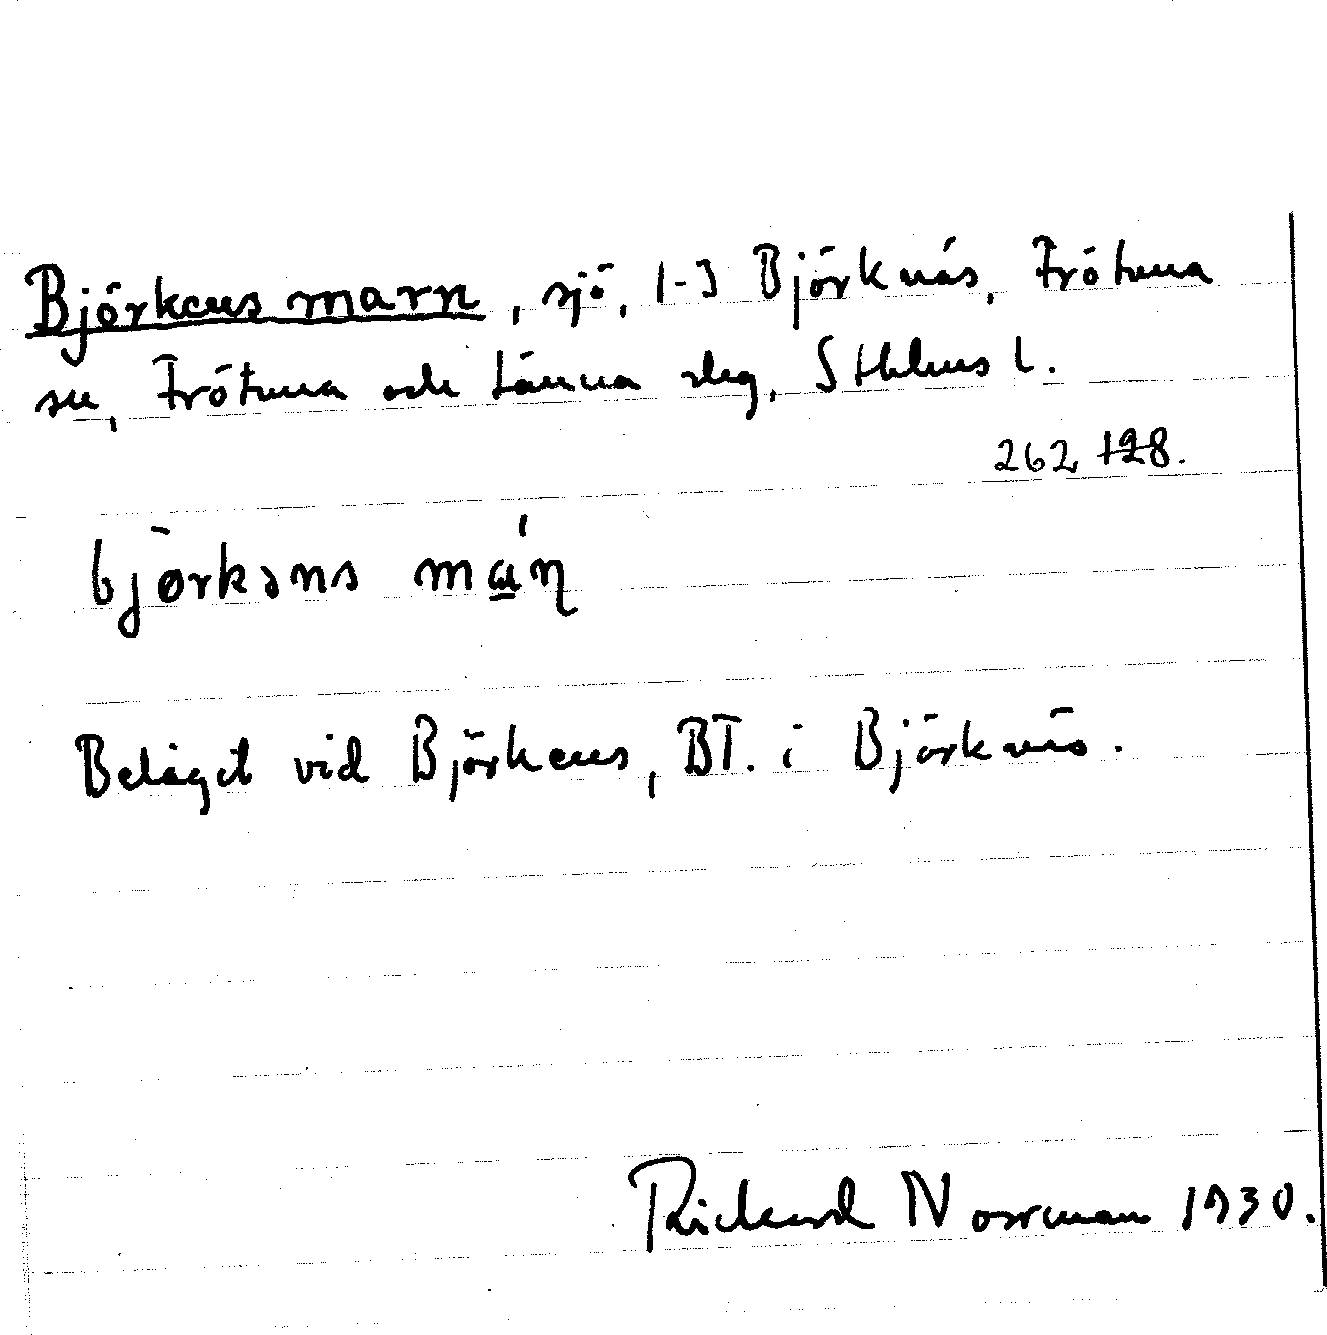 Björkens marn, sjö, 1-3 Björknäs, Frötuna
sn, Frötuna och Länna slg, Sthlms l.
262 128.
bjɵ̄rkəns ma̲'ɳ
Beläget vid Björkens, BT. i Björknäs.
Rickard Norrman 1930.